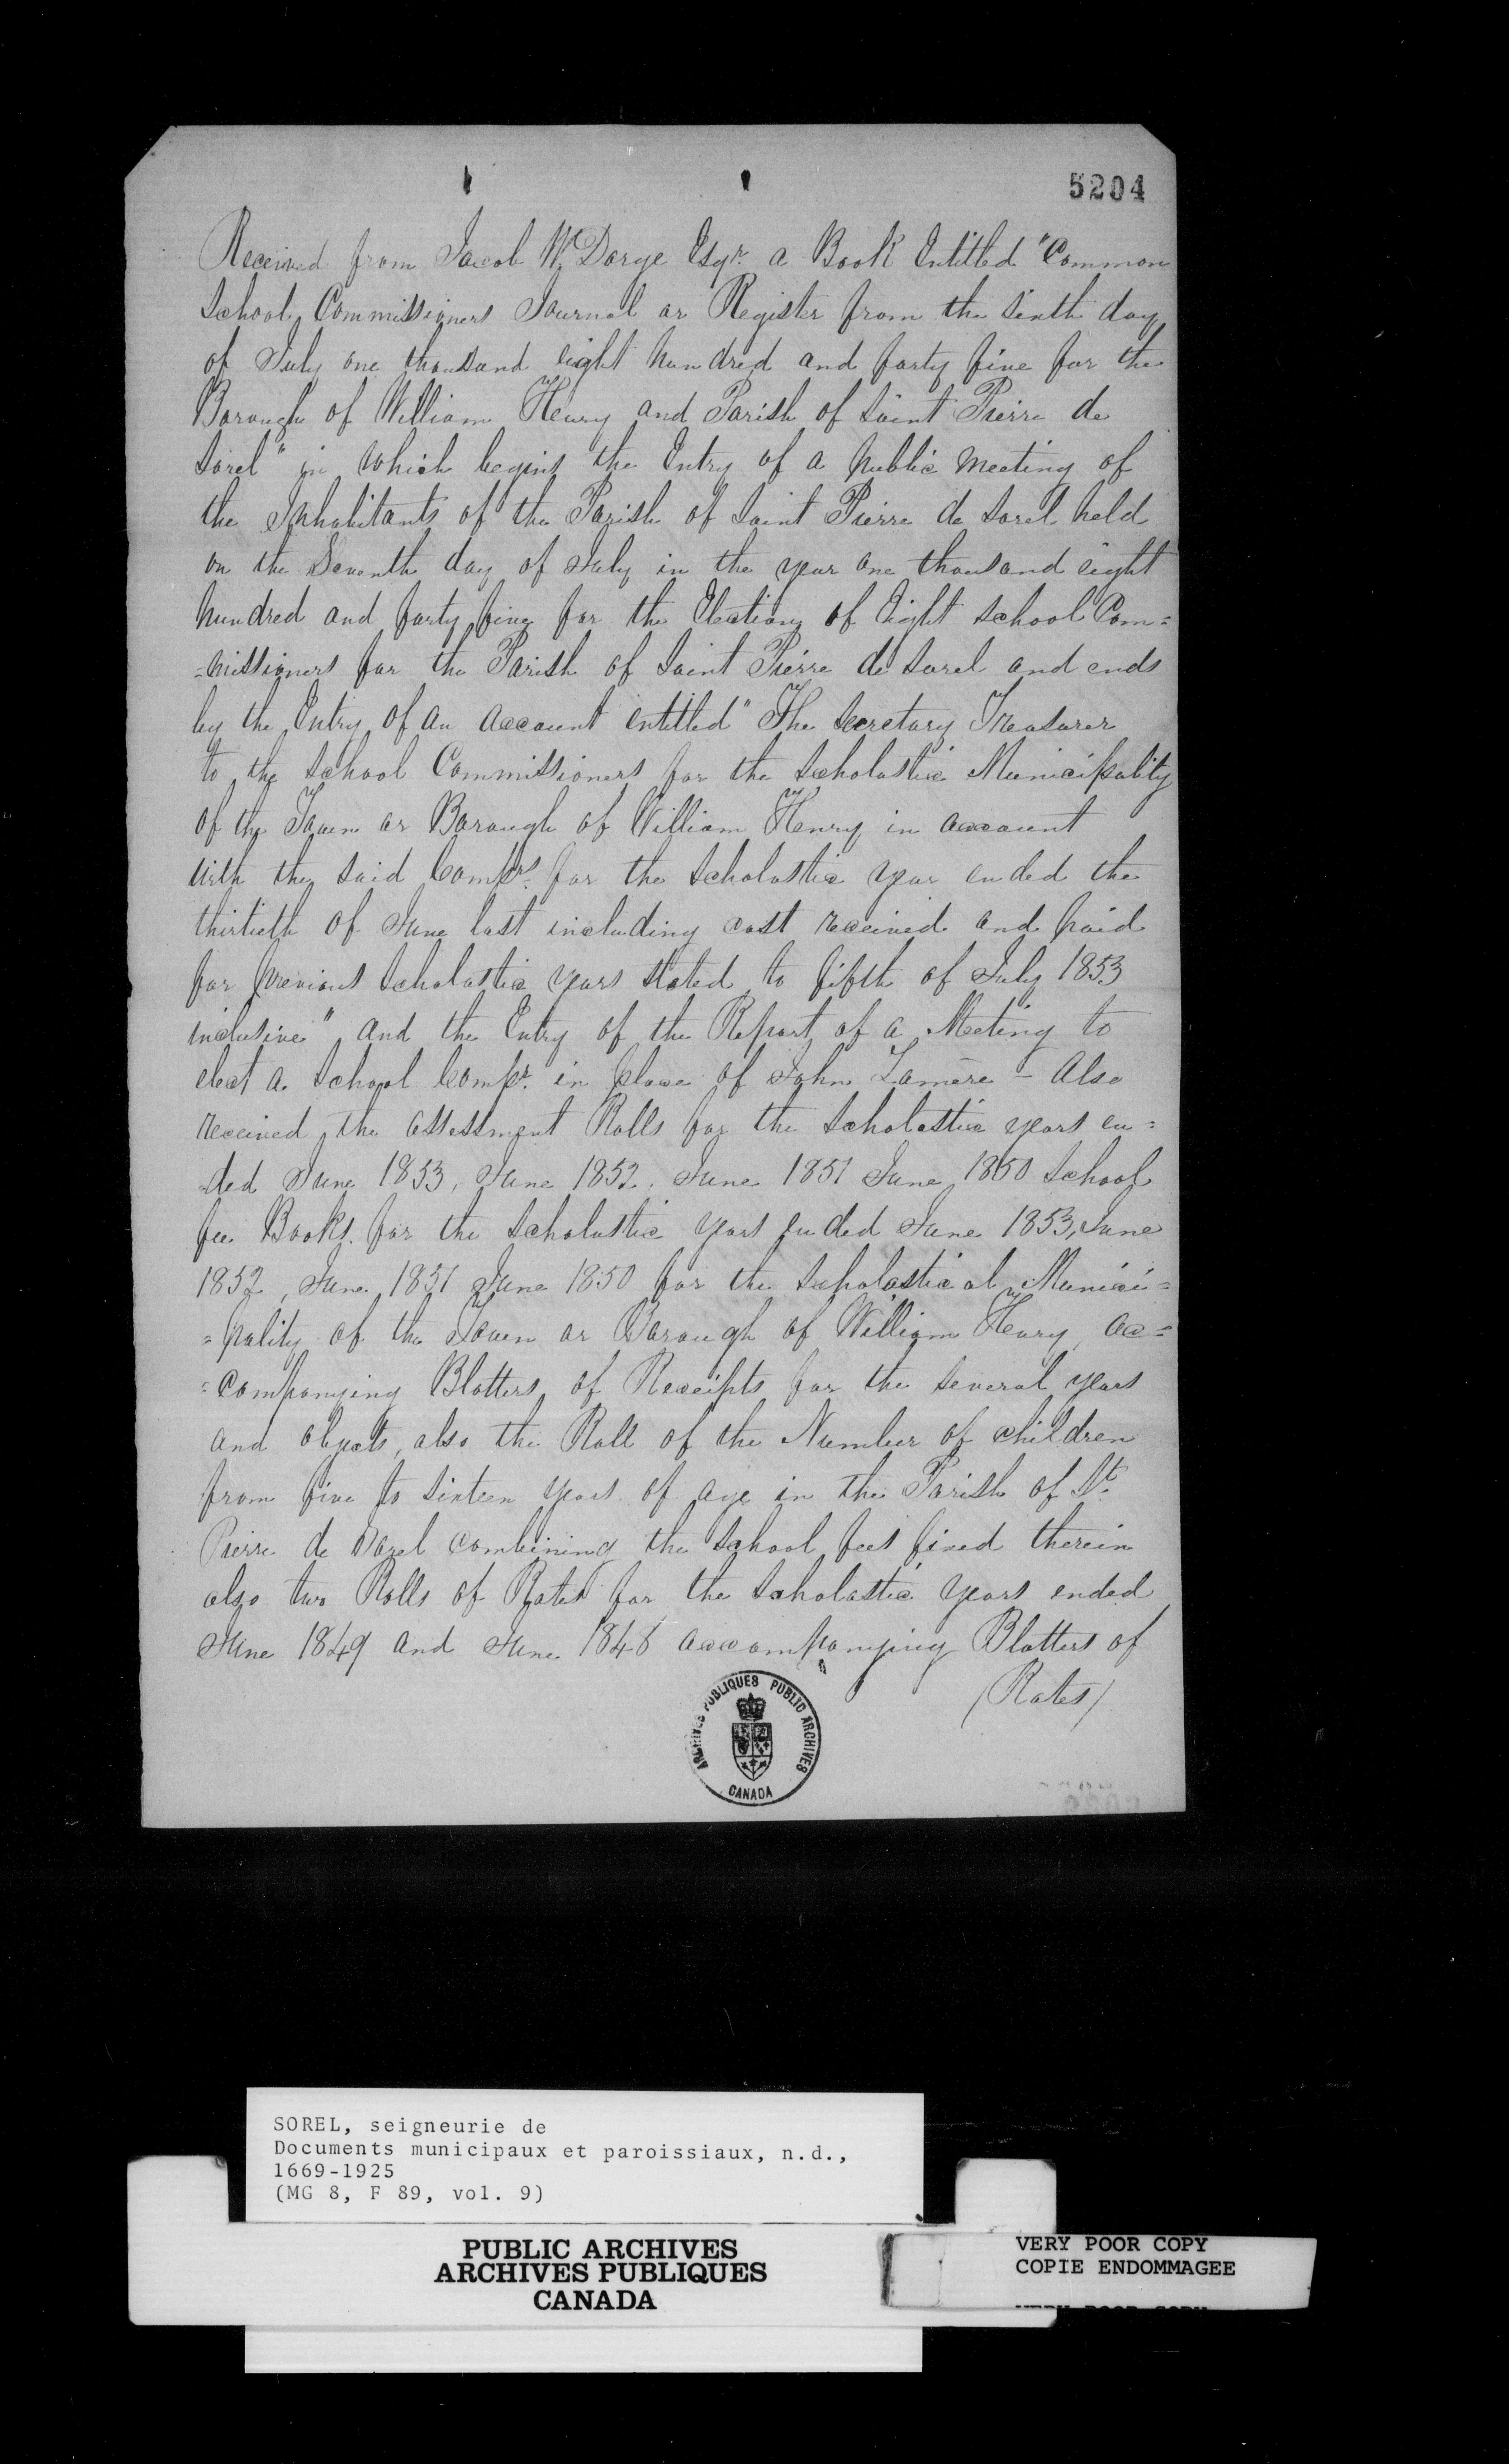 5204
Received from Jacob Wm Dorge Esqr. a Book Entitled "Common
School Commissioners Journal or Register from the sixth day
of July one thousand eight hundred and forty five for the
Borough of William Henry and Parish of Saint Pierre de
Sorel" in which begins the Entry of a public meeting of
the Inhabitants of the Parish of Saint Pierre de Sorel held
on the Seventh day of July in the year one thousand eight
hundred and forty five for the Election of Eight School Com=
=missioners for the Parish of Saint Pierre de Sorel and ends
by the Entry of an account entitled "The Secretary Treasurer
to the School Commissioners for the Scholastic Municipality
of the Town or Borough of William Henry in account
with the said Comrs. for the Scholastic year ended the
thirtieth of June last including cast received and paid
for previous Scholastic years stated to fifth of July 1853
inclusive" and the Entry of the Report of a Meeting to
elect a School Comr. in place of John Lamère - Also
received the assessment Rolls for the Scholastic years en=
ded June 1853, June 1852. June 1851 June 1850 School
fee Books for the Scholastic years ended June 1853, June
1852, June 1851 June 1850 for the Scholastical Munici=
=pality of the Town or Borough of William Henry, ac=
=companying Blotters of Receipts for the several years
and objects, also the Roll of the Number of children
from five to sixteen years of age in the Parish of St.
Pierre de Sorel combining the School fees fixed therein
also two Rolls of Rates for the Scholastic years ended
June 1849 and June 1848 accompanying Blotters of
/Rates/
ARCHIVES PUBLIQUES PUBLIC ARCHIVES
CANADA
SOREL, seigneurie de
Documents municipaux et paroissiaux, n.d.,
1669-1925
(MG 8, F 89, vol. 9)
PUBLIC ARCHIVES
ARCHIVES PUBLIQUES
CANADA
VERY POOR COPY
COPIE ENDOMMAGEE
VERY POOR COPY